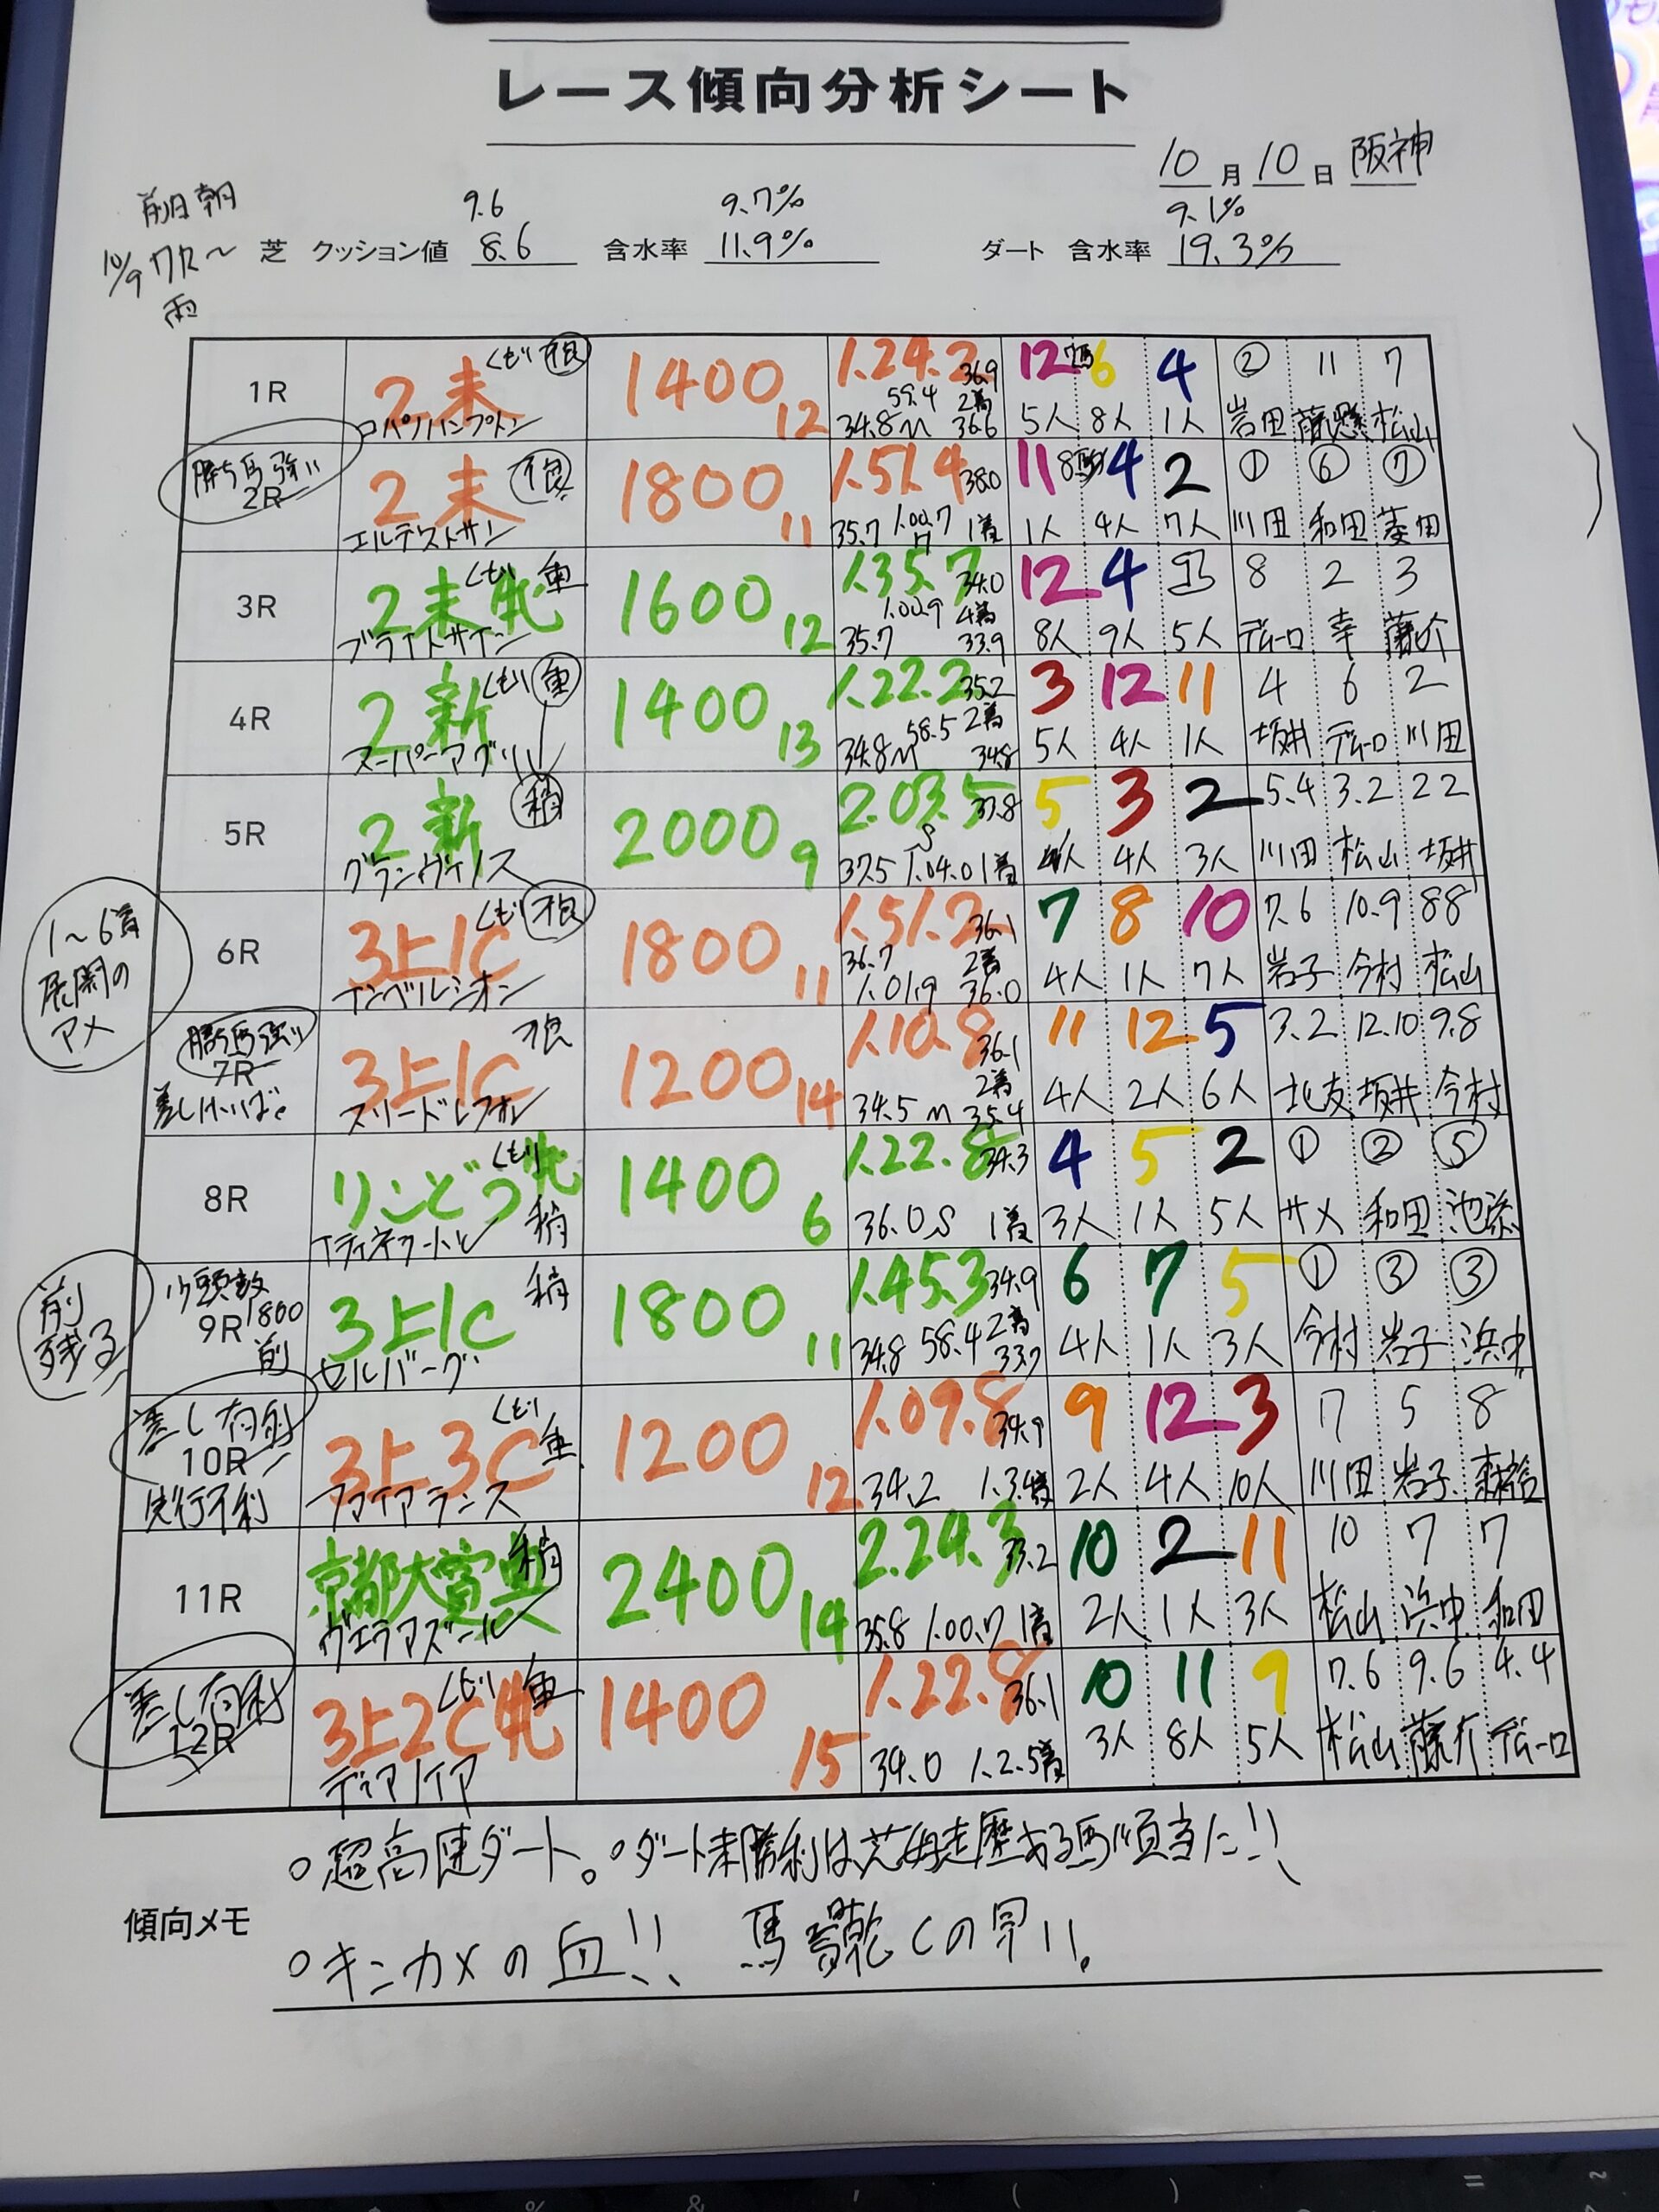 レース傾向分析シート
10月10日 阪神
前日朝 9.6 9.7% 9.1%
10/9 17R〜 芝 クッション値 8.6 含水率 11.9% ダート 含水率 19.3%
雨
1R 2未 くもり 不良 1400 12 1.24.2 36.9 12 6 4 ② 11 7
コパノハンプトン 59.4 2着 34.8M 36.6 5人 8人 1人 岩田 藤懸 松山
勝ち馬強い
2R 2未 不良 1800 11 1.51.4 38.0 11 4 2 ① ⑥ ⑦
エルデストサン 35.7 1.00.7 1着 1人 4人 7人 川田 和田 菱田
3R 2未牝 くもり 重 1600 12 1.35.7 34.0 12 4 5 8 2 3
ブライトサイン 1.00.9 4着 35.7 33.9 8人 9人 5人 デムーロ 幸 藤介
4R 2新 くもり 重 1400 13 1.22.2 35.2 3 12 11 4 6 2
スーパーアグリ 58.5 2着 34.8M 34.8 5人 4人 1人 坂井 デムーロ 川田
5R 2新 稍 2000 9 2.03.5 37.8 5 3 2 5.4 3.2 22
グランヴィノス S 37.5 1.04.0 1着 4人 3人 川田 松山 坂井
1〜6着
展開の
アメ
6R 3上1C くもり 不良 1800 11 1.51.2 36.1 7 8 10 7.6 10.9 88
インベルシオン 36.7 2着 1.01.9 36.0 4人 1人 7人 岩子 今村 松山
勝ち馬強い
7R 3上1C 不良 1200 14 1.10.8 36.1 11 12 5 3.2 12.10 9.8
スリードレフォン 2着 34.5 M 35.4 4人 2人 6人 北友 坂井 今村
8R りんどう 牝 くもり 稍 1400 6 1.22.8 34.3 4 5 2 ① ② ⑤
36.0S 1着 3人 1人 5人 サメ 和田 池添
前残る
少頭数
9R 1800 前 3上1C 稍 1800 11 1.45.3 34.9 6 7 5 ① ③ ③
セルバーグ 34.8 58.4 2着 33.7 4人 1人 3人 今村 岩子 浜中
差し有利
10R 3上3C くもり 重 1200 12 1.09.8 34.9 9 12 3 7 5 8
先行不利 ファイアランス 34.2 1.3.4着 2人 4人 10人 川田 岩子
11R 京都大賞典 稍 2400 14 2.24.3 33.2 10 2 11 10 7 7
ヴェラアズール 35.8 1.00.7 1着 2人 1人 3人 松山 浜中 和田
差し有利
12R 3上2C牝 くもり 重 1400 15 1.22.8 36.1 10 11 9 7.6 9.6 4.4
ディアノイア 34.0 1.2.5着 3人 8人 5人 松山 藤介 デムーロ
○超高速ダート。○ダート未勝利は芝毎走歴ある馬が順当だ!!
傾向メモ
○キンカメの血!! 馬場乾くの早い。